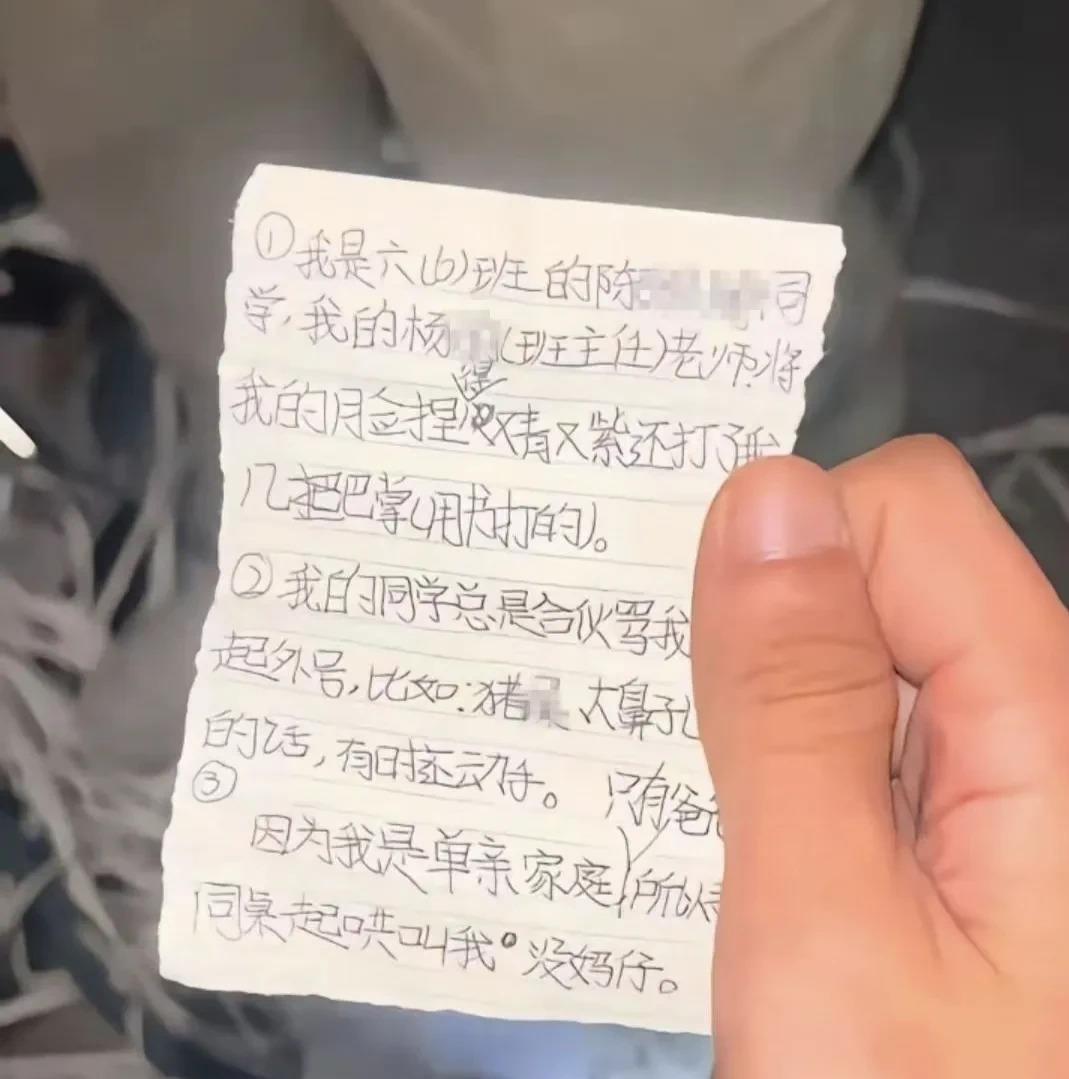 ①我是六(6)班的陈 同
学,我的杨 (班主任)老师将
我的脸捏得又青又紫还打了我
几把巴掌(用书打的)。
②我的同学总是合伙骂我
起外号,比如:猪 、大鼻子
的话,有时还动手。
③ 只有爸爸
因为我是单亲家庭,所以
同桌起哄叫我 没妈仔。